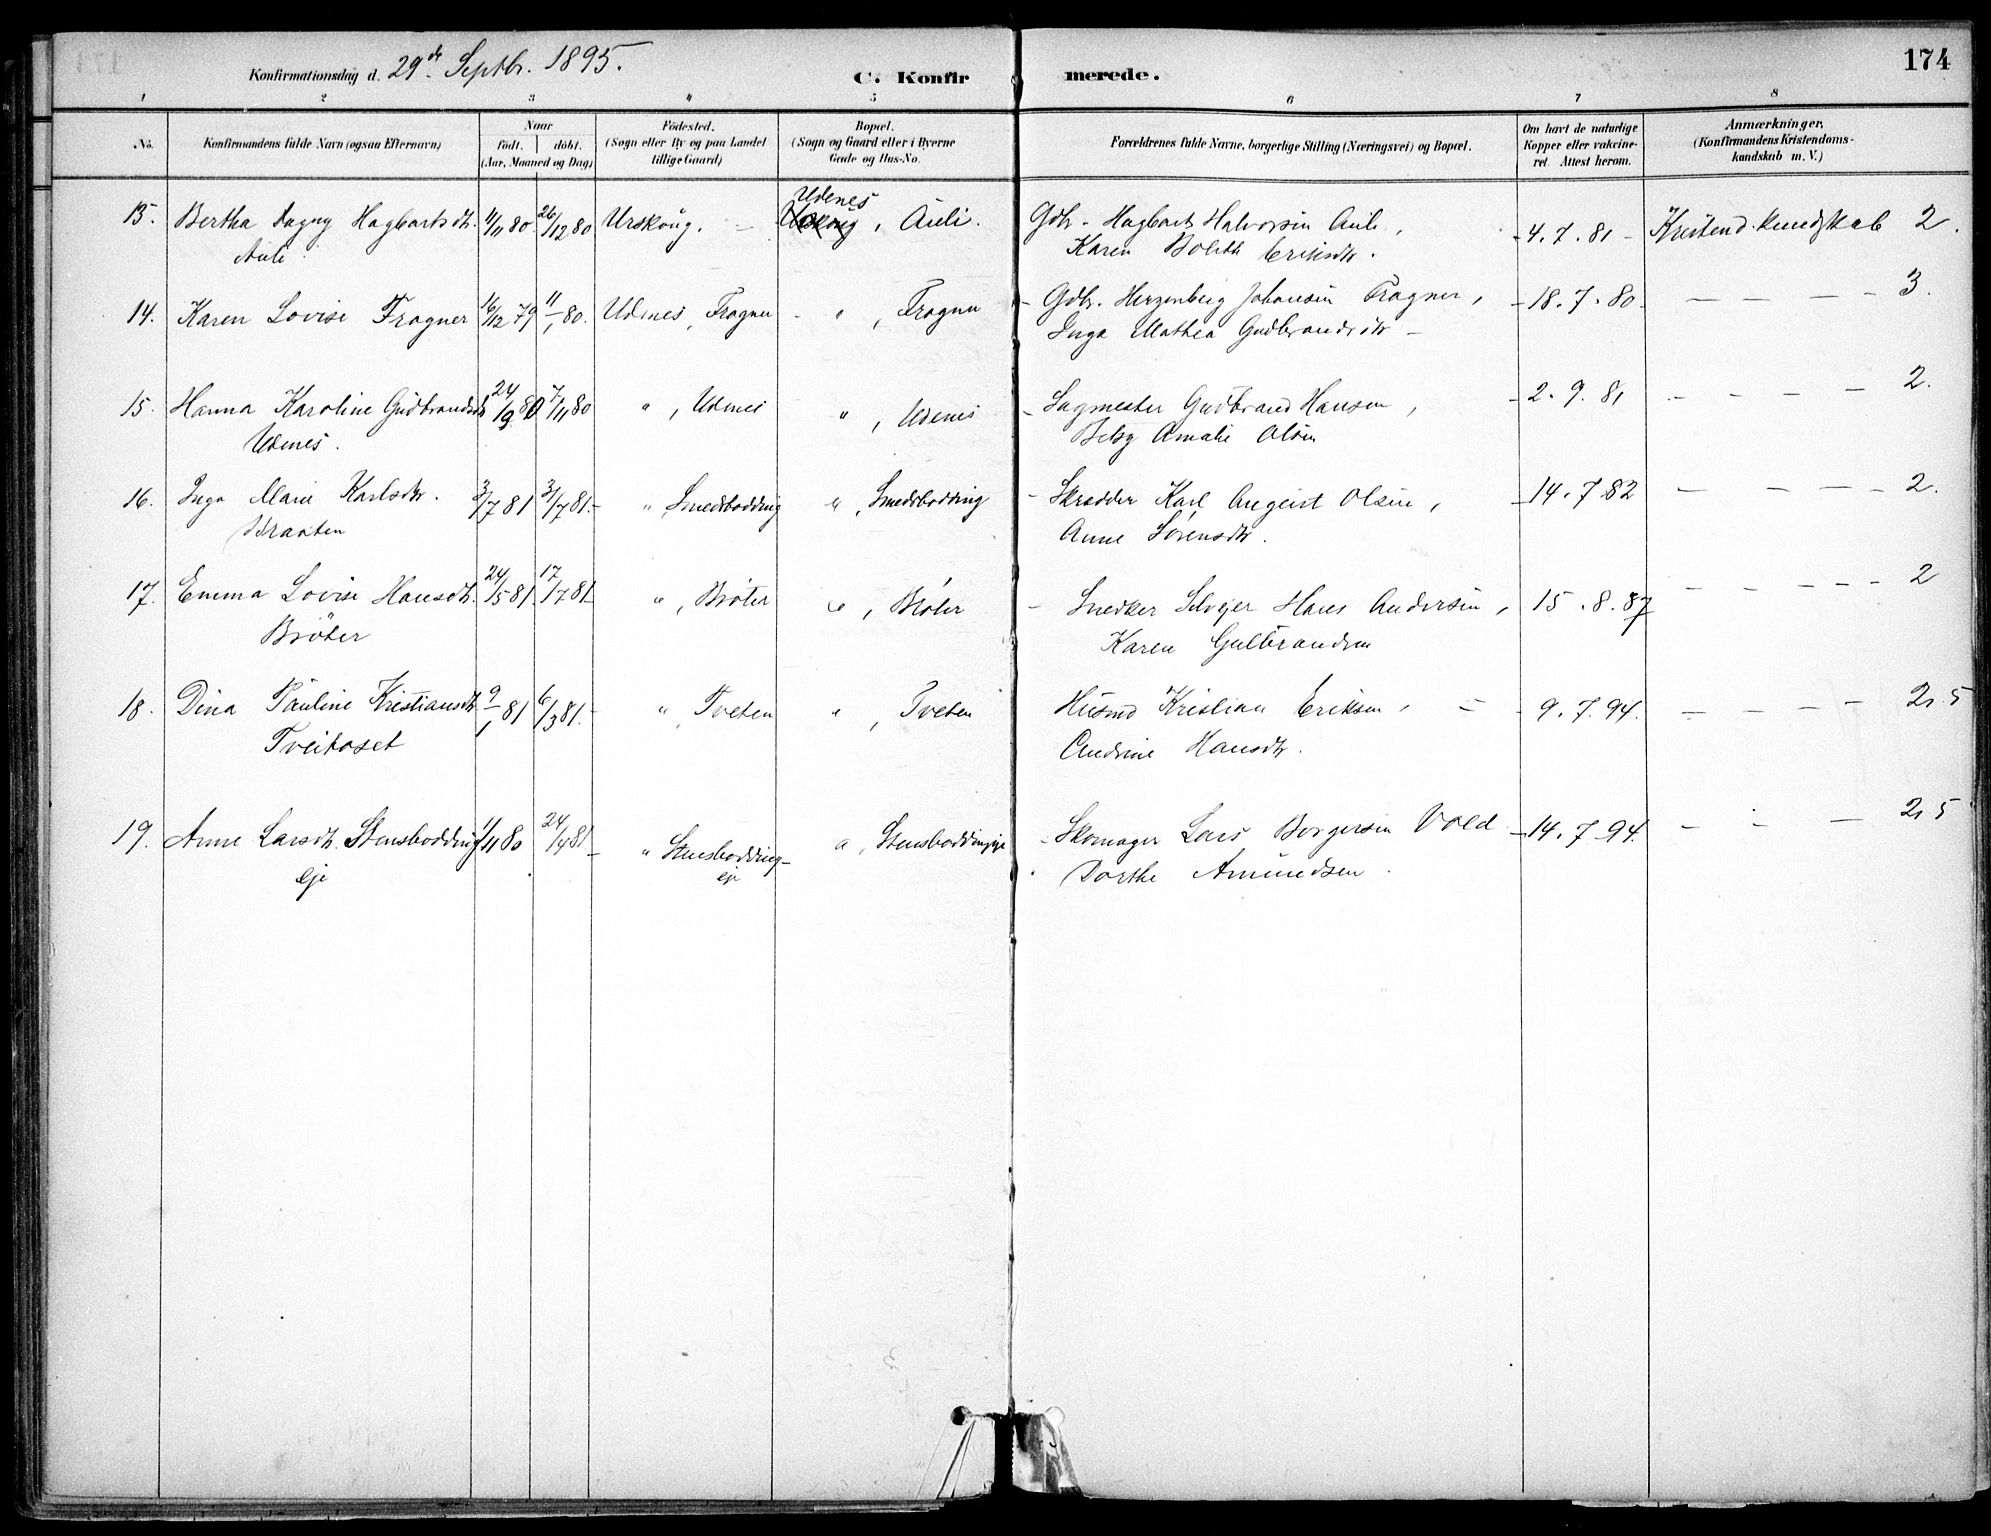 174
Konfirmationsdag d. 29de Septbr. 1895.
C. Konfirmerede.
1 2 3 4 5 6 7 8
No. Konfirmandens fulde Navn (ogsaa Efternavn) Naar født. døbt. (Aar, Maaned og Dag) Fødested. (Sogn eller By og paa Landet tillige Gaard) Bopæl. (Sogn og Gaard eller i Byerne Gade og Hus-No. Forældrenes fulde Navne, borgerlige Stilling (Næringsvei) og Bopæl. Om havt de naturlige Kopper eller vakcineret. Attest herom. Anmærkninger, (Konfirmandens Kristendomskundskab m. V.)
13. Bertha Dagny Hagbartsdtr. 11/11 80. 26/12 80 Urskoug. Udenes, Auli. Gdbr. Hagbart Halvorsen Auli, 4.7.81 Kristend. kundskab 2.
Auli Karen Bolith Eriksdtr.
14. Karen Lovise Fragner 16/12 79 11/1 80. Udenes, Fragner " , Fragner Gdbr. Herzenberg Johansen Fragner, 18.7.80. — — — — 3.
Inga Mathea Gudbrandsdtr —
15. Hanna Karoline Gudbrandsdtr 24/9 80 7/11 80 " , Udenes " , Udenes Sagmester Gudbrand Hansen, 2.9.81 — — — — 2.
Udenes. Betzy Amalie Olsen
16. Inga Marie Karlsdtr. 3/7 81 31/7 81. " , Smedsbødding " , Smedsbødding Skrædder Karl August Olsen, 14.7.82 — — — — 2.
Braaten Anne Sørensdtr.
17. Emma Lovise Hansdtr. 24/5 81. 17/7 81 " , Brøter " , Brøter Snedker Selvejer Hans Andersen, 15.8.87 — — — — 2
Brøter Karen Gulbrandsen
18. Dina Pauline Kristiansdtr 9/1 81 6/3 81. " , Tveten " , Tveten Husmd Kristian Eriksen, 9.7.94. — — — — 2,5
Tveitaset Andrine Hansdtr.
19. Anne Larsdtr. Stensbødding 1/11 80 24/4 81 " Stensbødding- " , Stensboddingeje Skomager Lars Borgersen Vold 14.7.94. — — — 2,5
eje eje Dorthe Amundsen.